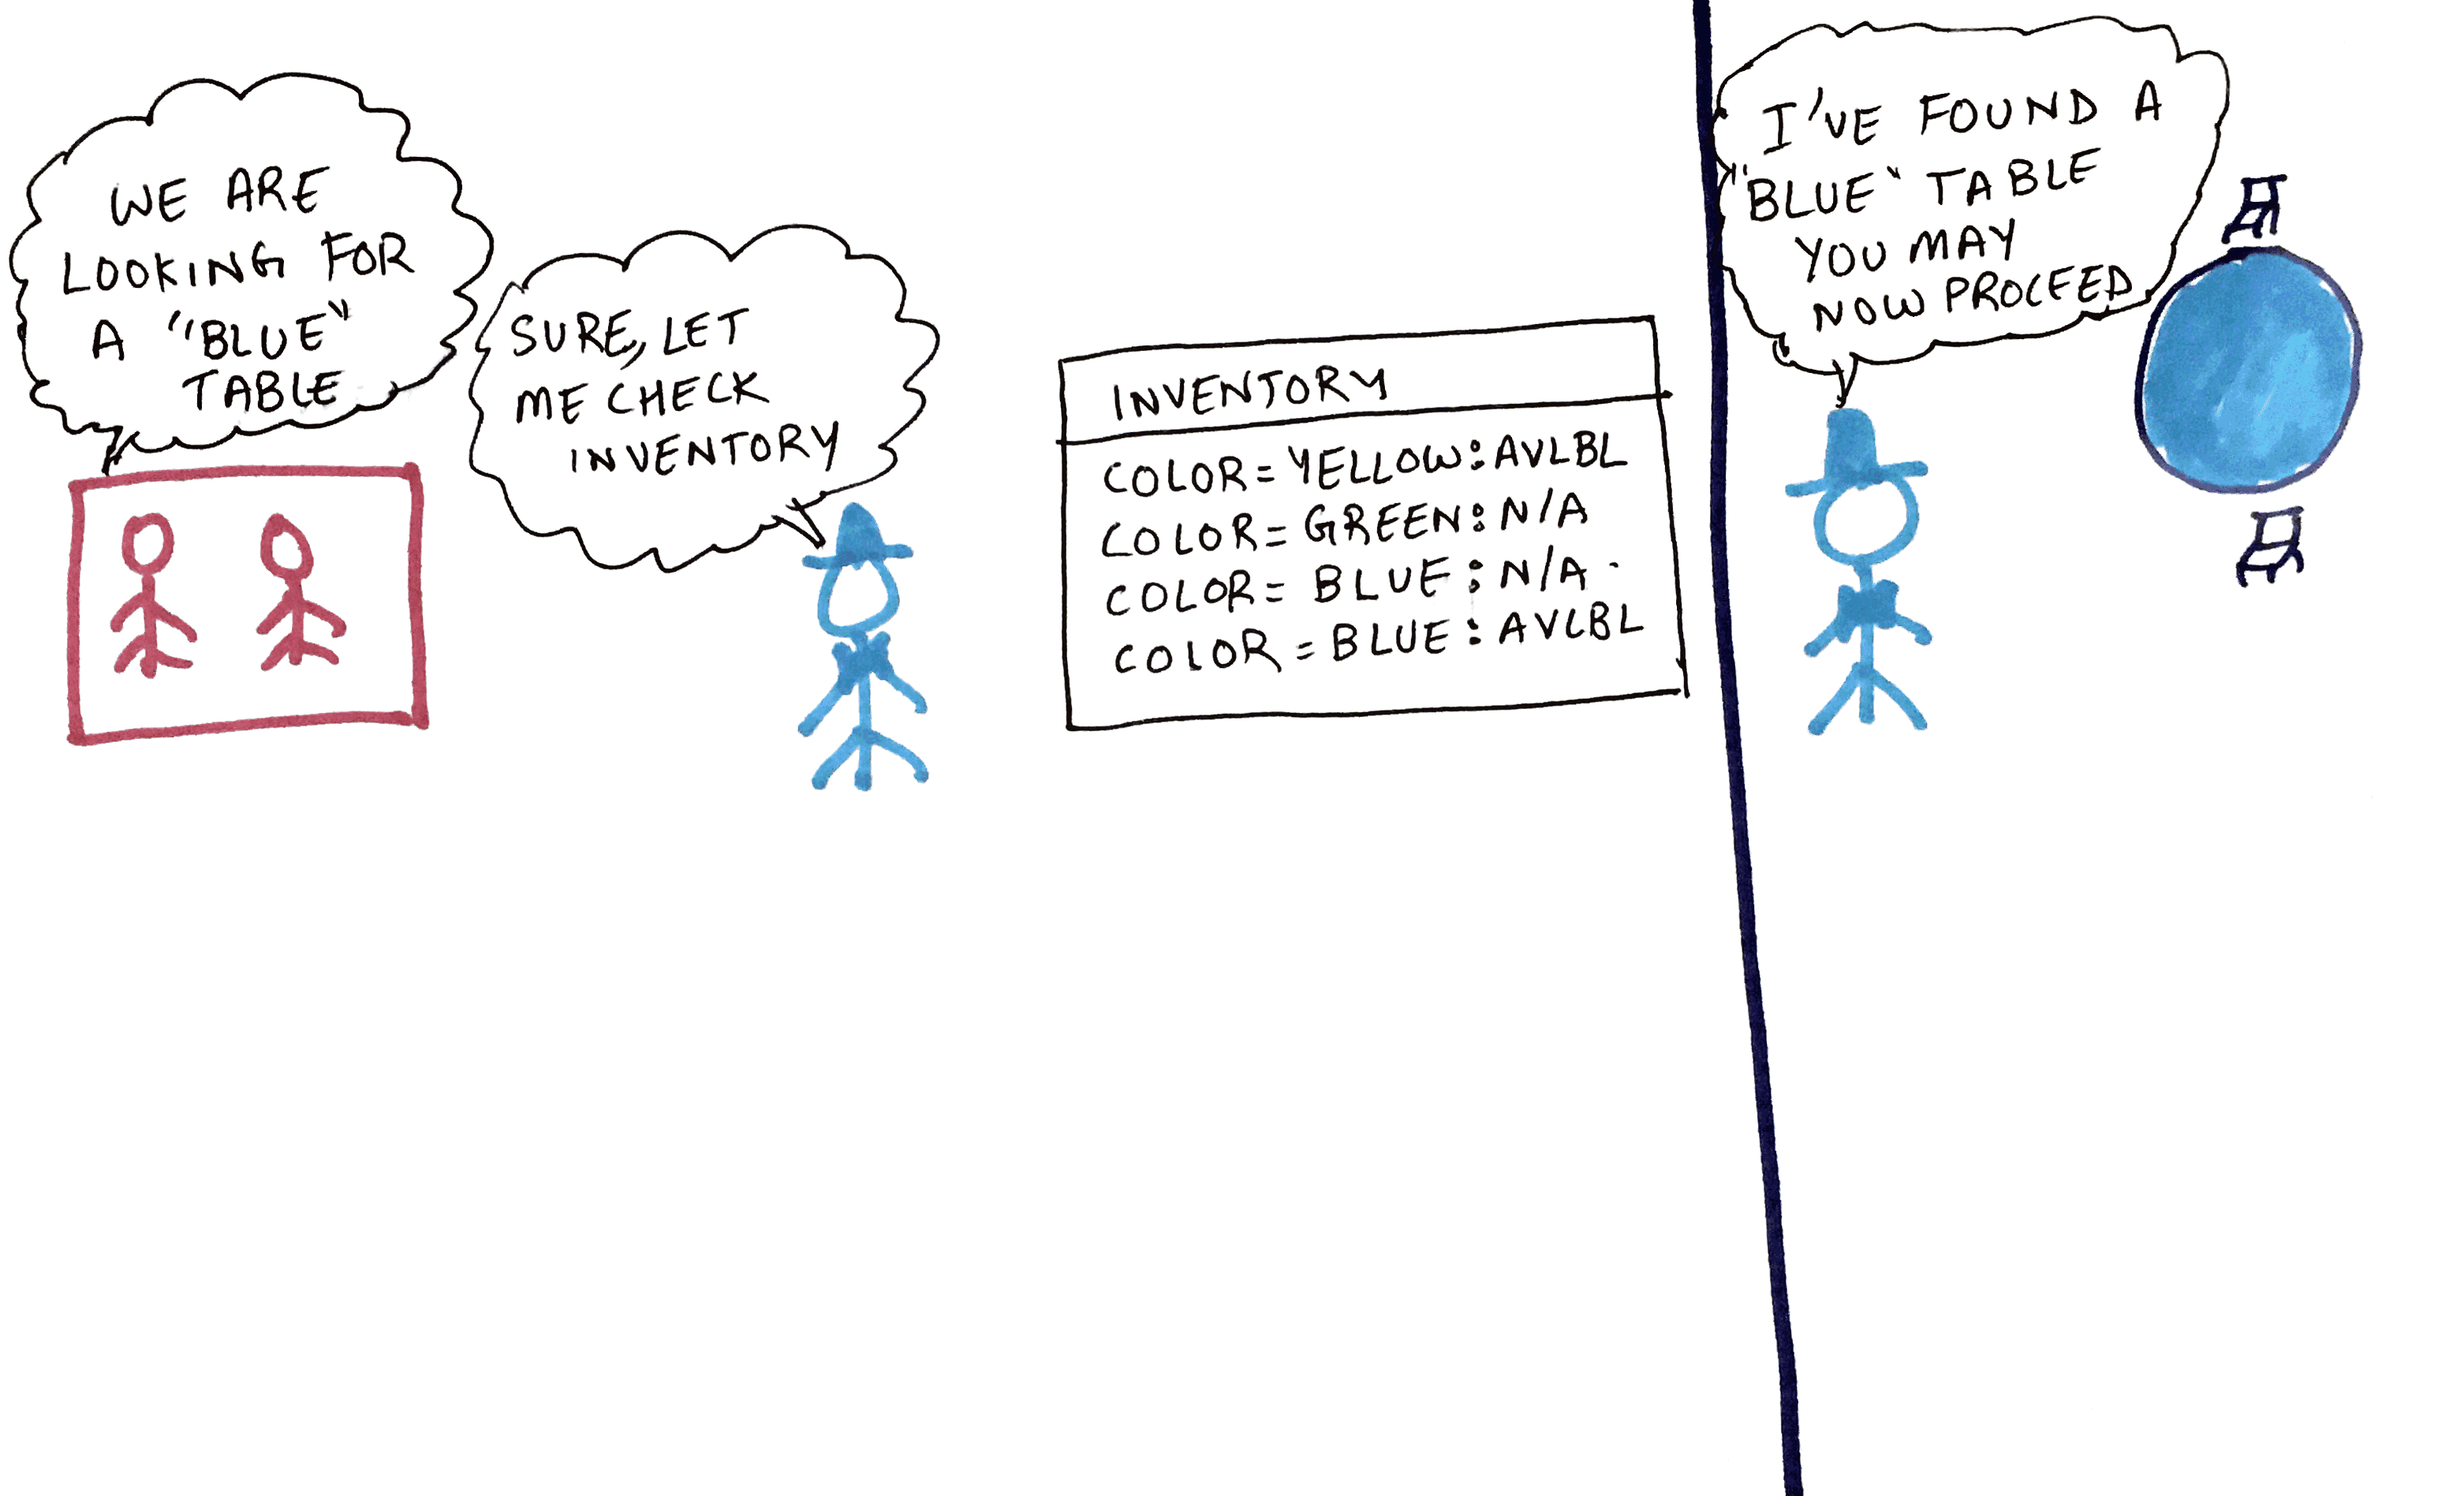 WE ARE
LOOKING FOR
A "BLUE"
TABLE
SURE, LET
ME CHECK
INVENTORY
INVENTORY
COLOR = YELLOW : AVLBL
COLOR = GREEN : N/A
COLOR = BLUE : N/A
COLOR = BLUE : AVLBL
I'VE FOUND A
"BLUE" TABLE
YOU MAY
NOW PROCEED